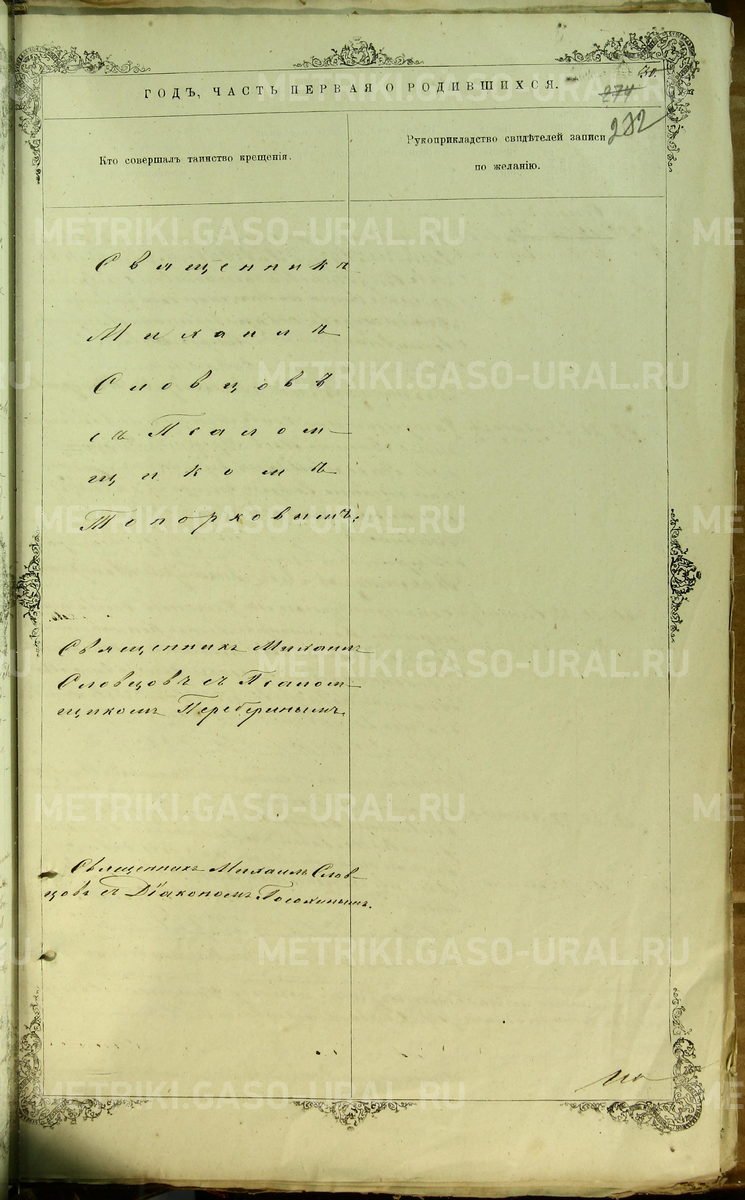 ГОДЪ, ЧАСТЬ ПЕРВАЯ О РОДИВШИХСЯ.
274
232
Кто совершалъ таинство крещенія.
Рукоприкладство свидѣтелей записи
по желанію.
Священникъ
Михаилъ
Словцовъ
съ Псалом-
щикомъ
Топорковымъ.
Священникъ Михаилъ
Словцовъ съ Псалом-
щикомъ
Священникъ Михаилъ Слов-
цовъ съ Діакономъ
METRIKI.GASO-URAL.RU